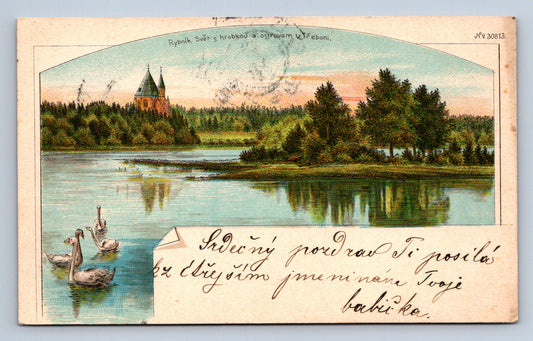 Rybník Svět s hrobkou a ostrovem v Třeboni.
Nº 30813.
Srdečný pozdrav Ti posílá
kz čtřejším jmeninám Tvoje
babička.